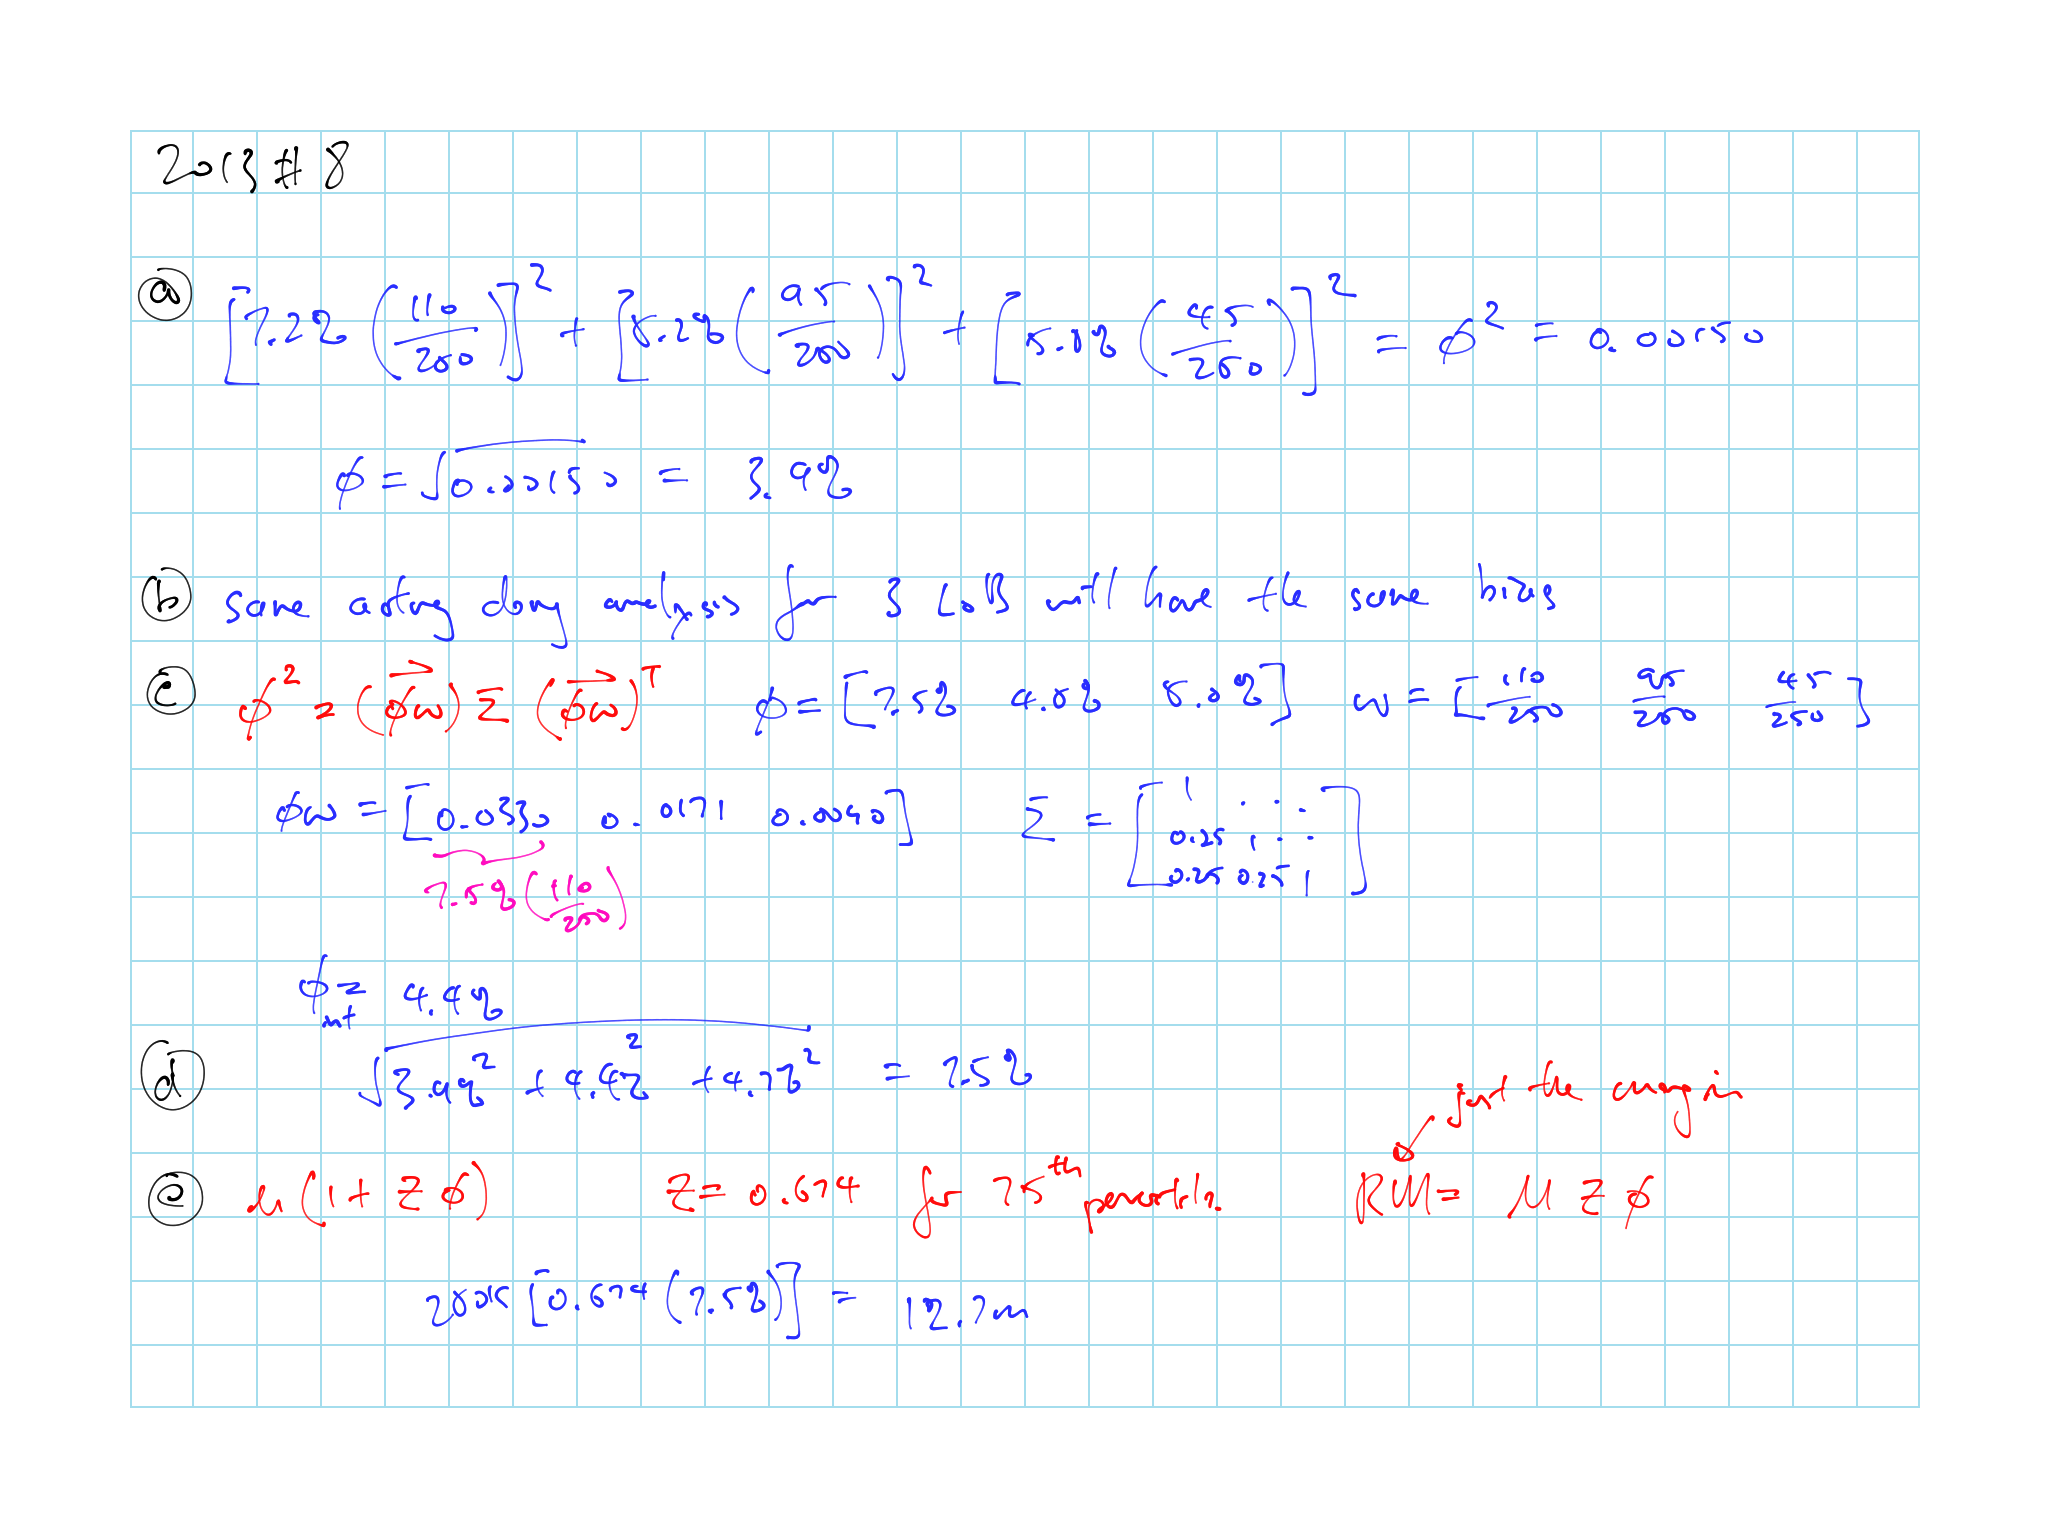 2013 #8
ⓐ [7.2% (110/250)]² + [5.2% (95/250)]² + [5.8% (45/250)]² = ϕ² = 0.00150
ϕ = √0.00150 = 3.9%
ⓑ same actuary doing analysis for 3 LoB will have the same bias
ⓒ ϕ² = (ϕω) Σ (ϕω)ᵀ ϕ = [7.5% 4.5% 5.0%] ω = [110/250 95/250 45/250]
ϕω = [0.0330 0.0171 0.0090] Σ = [1 · · 0.25 1 · 0.25 0.25 1]
7.5% (110/250)
ϕ int = 4.4%
ⓓ √3.9%² + 4.4%² + 4.7%² = 7.5%
just the margin
ⓔ μ(1 + Zϕ) Z = 0.674 for 75th percentile RM = μ Z ϕ
[0.674 (7.5%)] = 12.7m